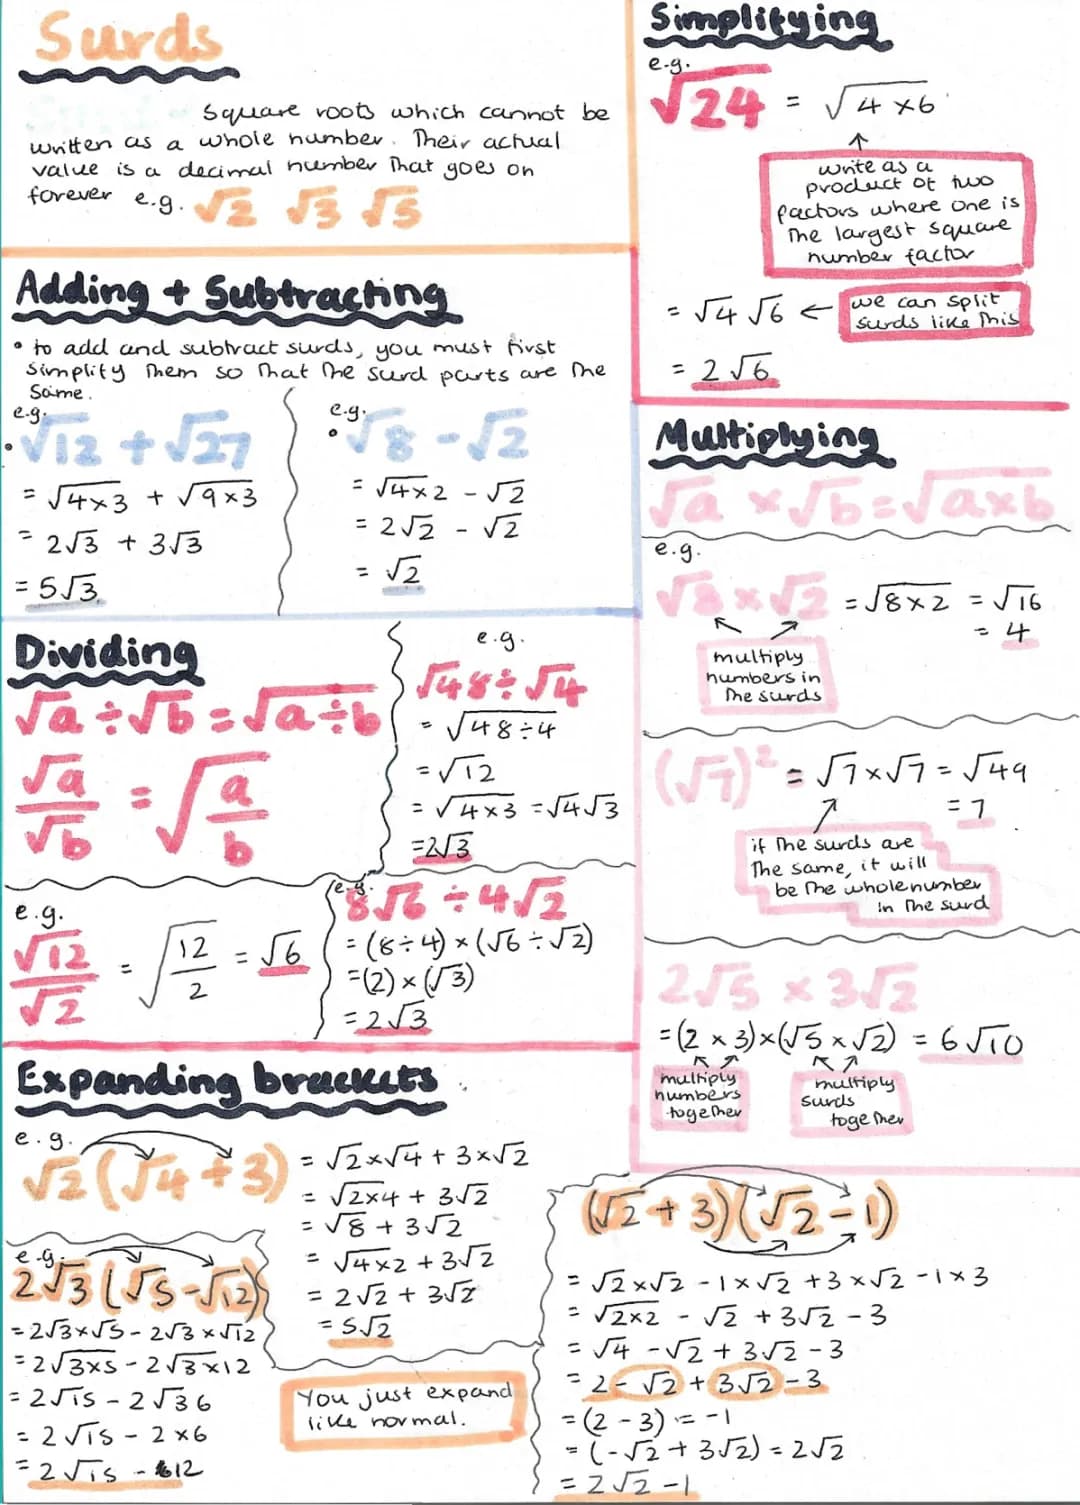 Surds
Square roots which cannot be
written as a whole number. Their actual
value is a decimal number that goes on
forever e.g. √2 √3 √5
Adding + Subtracting
• to add and subtract surds, you must first
simplify them so that the surd parts are the
same.
e.g.
• √12 + √27
= √4×3 + √9×3
= 2√3 + 3√3
= 5√3
e.g.
• √8 - √2
= √4×2 - √2
= 2√2 - √2
= √2
Dividing
√a ÷ √b = √a÷b
√a/√b = √a/b
e.g.
√48 ÷ √4
= √48÷4
= √12
= √4×3 = √4√3
= 2√3
e.g.
√12/√2 = √12/2 = √6
e.g.
8√6 ÷ 4√2
= (8÷4) × (√6 ÷ √2)
= (2) × (√3)
= 2√3
Expanding brackets
e.g.
√2 (√4 + 3)
= √2×√4 + 3×√2
= √2×4 + 3√2
= √8 + 3√2
= √4×2 + 3√2
= 2√2 + 3√2
= 5√2
e.g.
2√3 (√5 - √12)
= 2√3×√5 - 2√3×√12
= 2√3×5 - 2√3×12
= 2√15 - 2√36
= 2√15 - 2×6
= 2√15 - 12
You just expand
like normal.
(√2 + 3)(√2 - 1)
= √2×√2 - 1×√2 + 3×√2 - 1×3
= √2×2 - √2 + 3√2 - 3
= √4 - √2 + 3√2 - 3
= 2 - √2 + 3√2 - 3
= (2 - 3) = -1
= (-√2 + 3√2) = 2√2
= 2√2 - 1
Simplifying
e.g.
√24 = √4×6
write as a
product of two
factors where one is
the largest square
number factor
= √4 √6 ← we can split
surds like this
= 2√6
Multiplying
√a × √b = √a×b
e.g.
√8 × √2 = √8×2 = √16
= 4
multiply
numbers in
the surds
(√7)² = √7×√7 = √49
= 7
if the surds are
the same, it will
be the whole number
in the surd
2√5 × 3√2
= (2 × 3)×(√5 × √2) = 6√10
multiply
numbers
together
multiply
surds
together